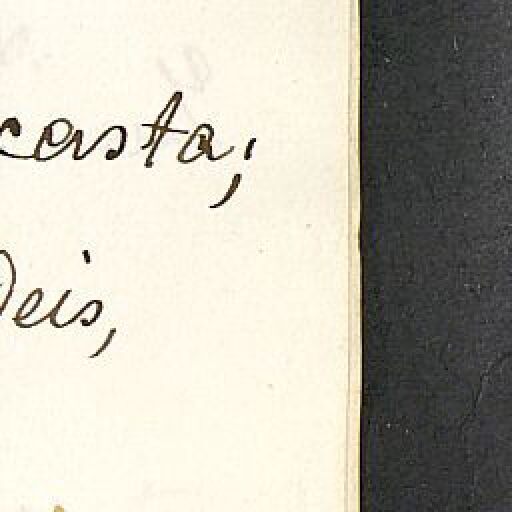 casta;
Deis,